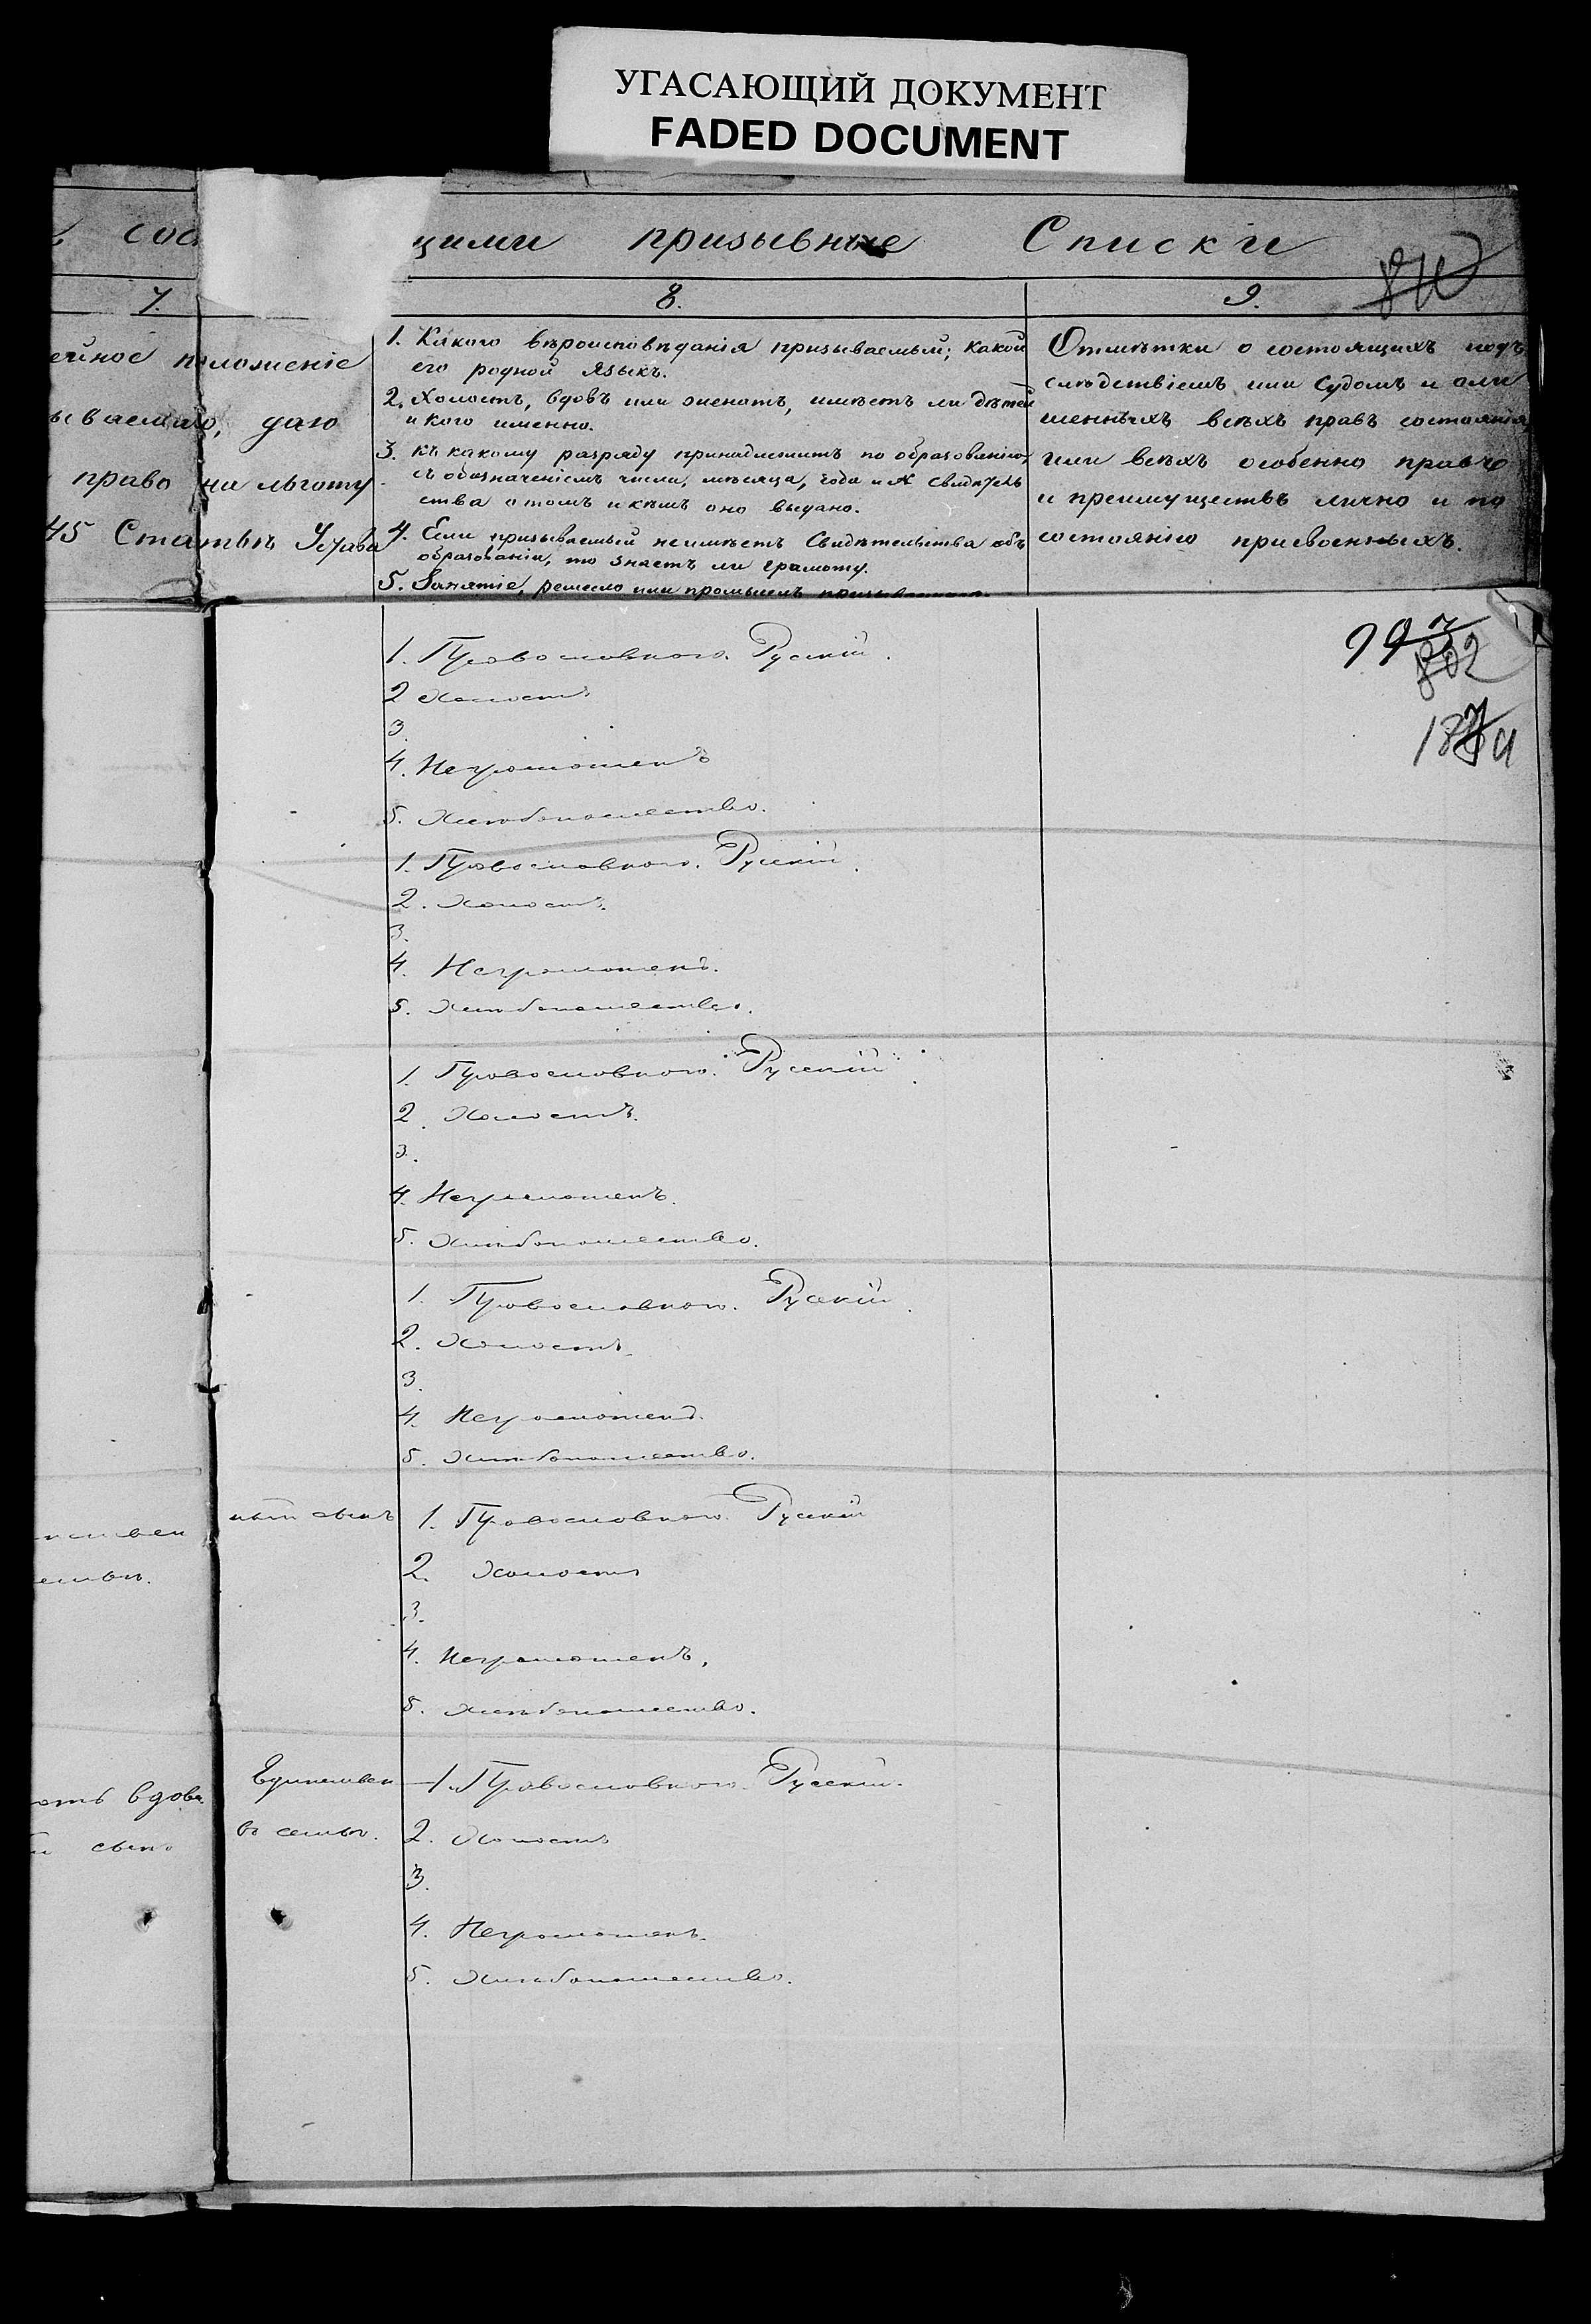 УГАСАЮЩИЙ ДОКУМЕНТ
FADED DOCUMENT
щими призывные Списки
7.
8.
9.
ейное положеніе
ываемаго, даю
право на льготу
45 Статьѣ Устава
1. Какого вѣроисповѣданія призываемый; какой
его родной языкъ.
2. Холостъ, вдовъ или женатъ, имѣетъ ли дѣтей
и кого именно.
3. Къ какому разряду принадлежитъ по образованію,
съ обозначеніемъ числа, мѣсяца, года и № свидѣтель
ства о томъ и кѣмъ оно выдано.
4. Если призываемый неимѣетъ Свидѣтельства объ
образованіи, то знаетъ ли грамоту.
5. Занятіе, ремесло или промыселъ призываемаго.
Отмѣтки о состоящихъ подъ
слѣдствіемъ или судомъ и о ли
шенныхъ всѣхъ правъ состоянія,
или всѣхъ особенно правъ
и преимуществъ лично и по
состоянію присвоенныхъ.
1. Православного. Русскій.
2 Холостъ
3.
4. Неграмотенъ
5. Хлѣбопашество.
1. Православного. Русскій.
2. Холостъ.
3.
4. Неграмотенъ.
5. Хлѣбопашество.
1. Православного. Русскій.
2. Холостъ.
3.
4. Неграмотенъ.
5. Хлѣбопашество.
1. Православного. Русскій.
2. Холостъ.
3.
4. Неграмотенъ.
5. Хлѣбопашество.
ный сынъ
1. Православного. Русскій
2. Холостъ
3.
4. Неграмотенъ.
5. Хлѣбопашество.
вдова
сынъ
Единствен
въ семьѣ.
1. Православного. Русскій.
2. Холостъ
3.
4. Неграмотенъ.
5. Хлѣбопашество.